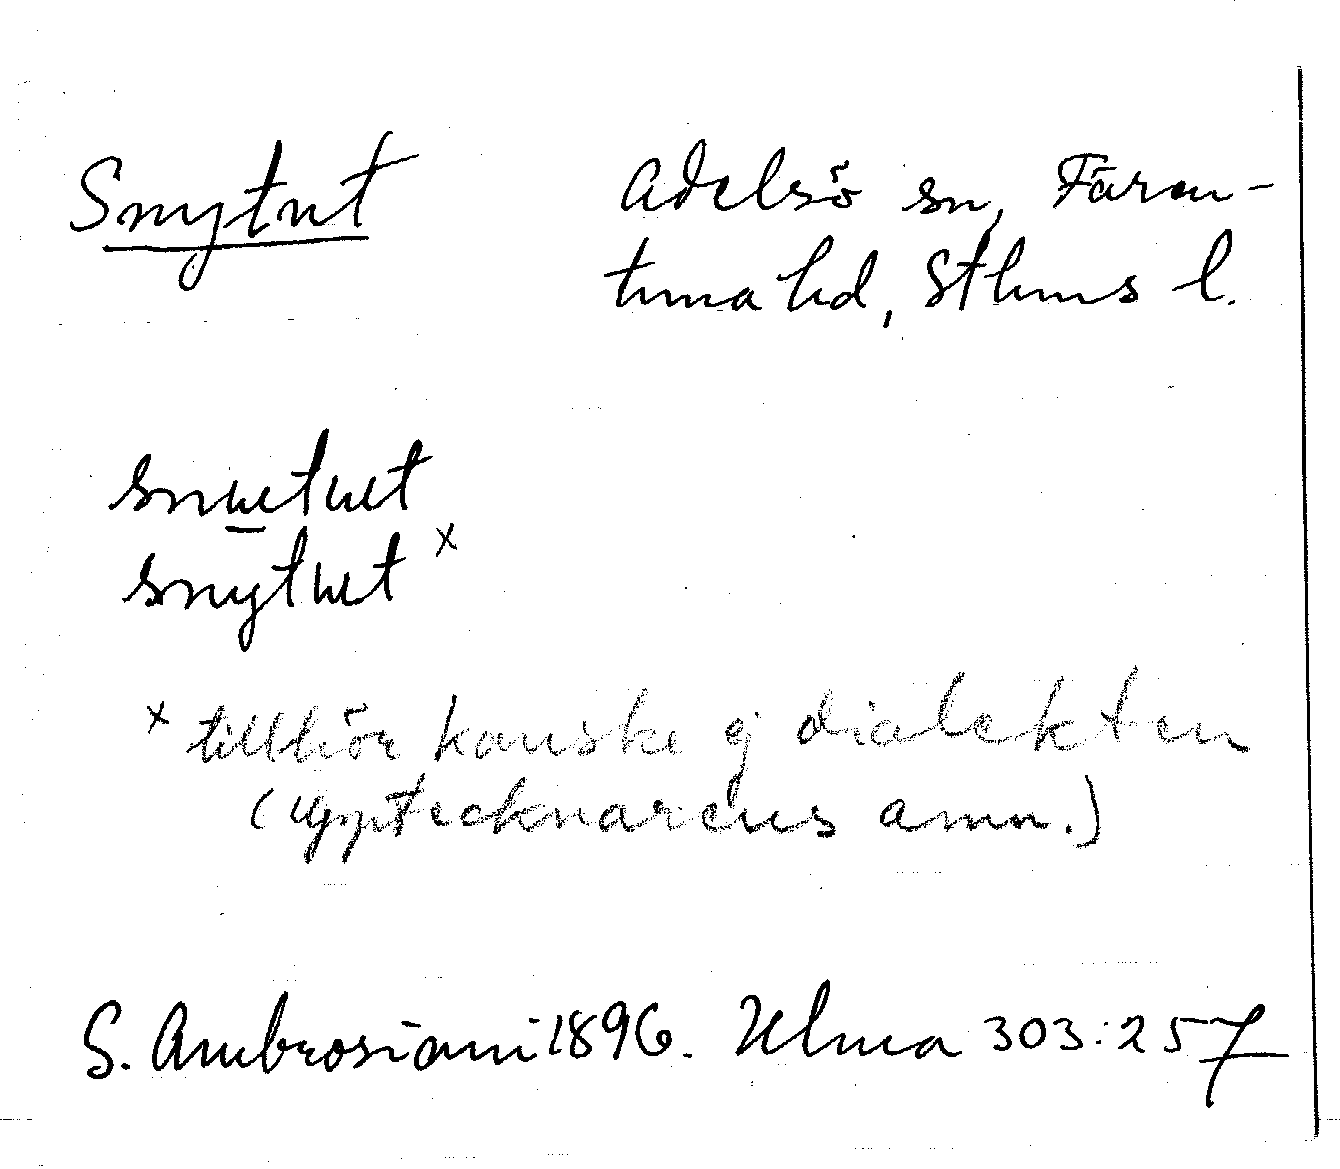 Snytut
Adelsö sn, Fären-
tuna hd, Sthms l.
snutut
snytut x
x tillhör kanske ej dialekten
(Upptecknarens anm.)
S. Ambrosiani 1896. Ulma 303:257